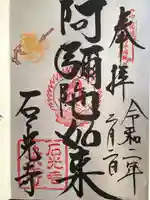 奉拝
令和二年
二月二百
阿彌陀如来
石光寺
石光寺